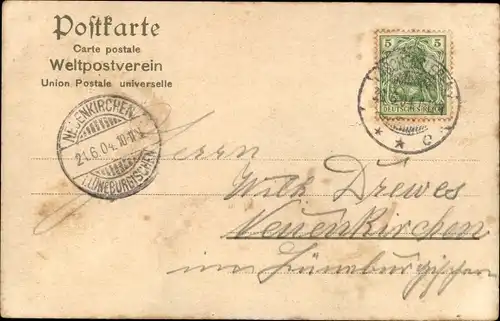 Postkarte
Carte postale
Weltpostverein
Union Postale universelle
5 5
DEUTSCHES REICH
* * * c
NEUENKIRCHEN
21.6.04.
(LÜNEBURGISCHEN)
Herrn
Wilh. Drewes
Neuenkirchen
im Lüneburgischen